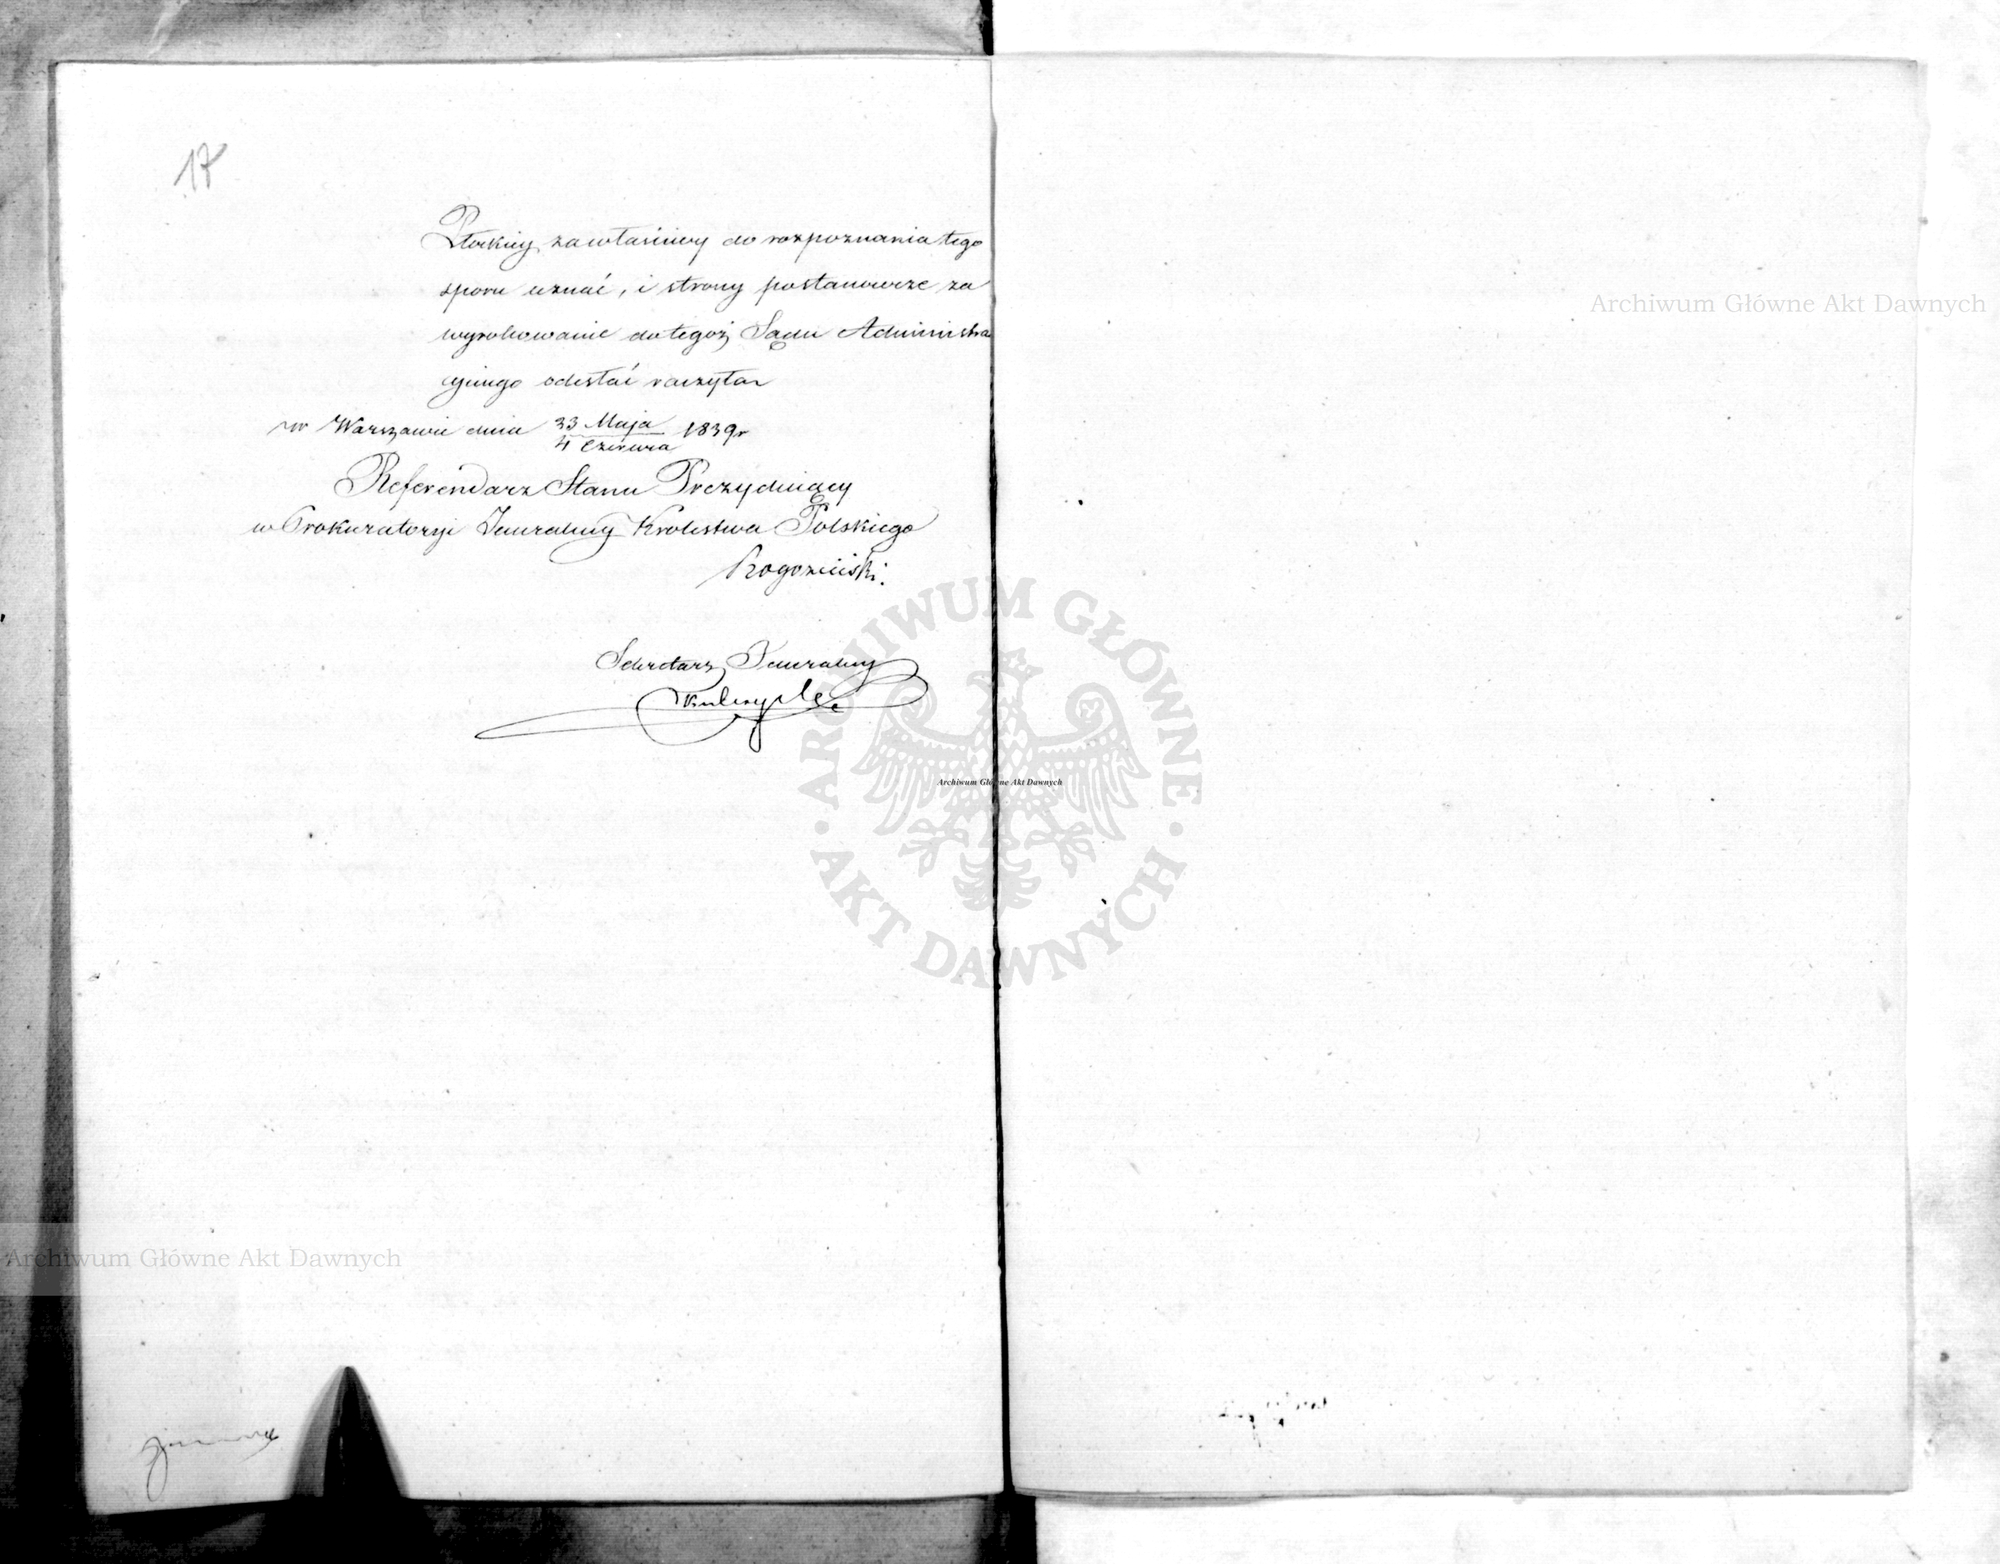 17
Płockiey za właściwy do rozpoznania tego
sporu uznać, i strony postanowcze za
wyrokowanie do tegoż Sądu Administra
cyinego odesłać raczyła
w Warszawie dnia 23 Maja / 4 Czerwca 1839 r
Referendarz Stanu Prezyduiący
w Prokuratoryi Jeneralney Krolestwa Polskiego
Rogoziński.
Sekretarz Jeneralny
Archiwum Główne Akt Dawnych
ARCHIWUM GŁÓWNE · AKT DAWNYCH ·
Archiwum Główne Akt Dawnych
Archiwum Główne Akt Dawnych